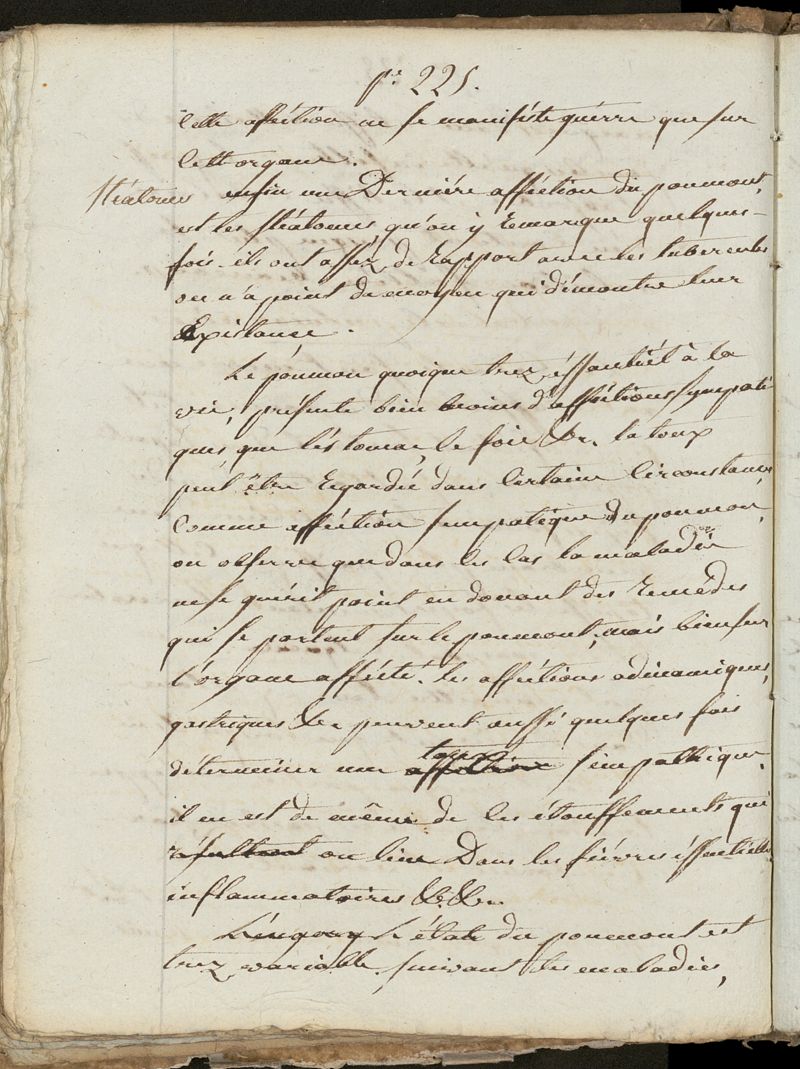 pe 225.
Cette affection ne se manifeste guérre que sur
cett organe.
Stéatomes enfin une Derniére affection du poumont,
est les stéatomes qu'on y remarque quelques-
fois. ils ont assez de rapport avec les tubercules
on n'a point de moyen qui démontre leur
Existance.
Le poumon quoique trez éssentiél à la
vie, présente bien moins d'afféctions sympati-
ques que léstomac, le foie &c. la toux
peut être regardée dans certaine circonstances
Comme afféction simpatique du poumon,
on observe que dans ces cas la maladie
ne se guérit point en donant des remédes
qui se portent sur le poumont, mais bien sur
l'organe affécté. les afféctions adinamiques,
gastriques &c peuvent aussi quelques fois
déterminer une toux simpathique.
il en est de même de les étouffements qui
résultent ou lieu Dans les fiévres éssentielles
inflammatoires &c. &c.
L'état du poumont est
trez variable, suivant les maladies,